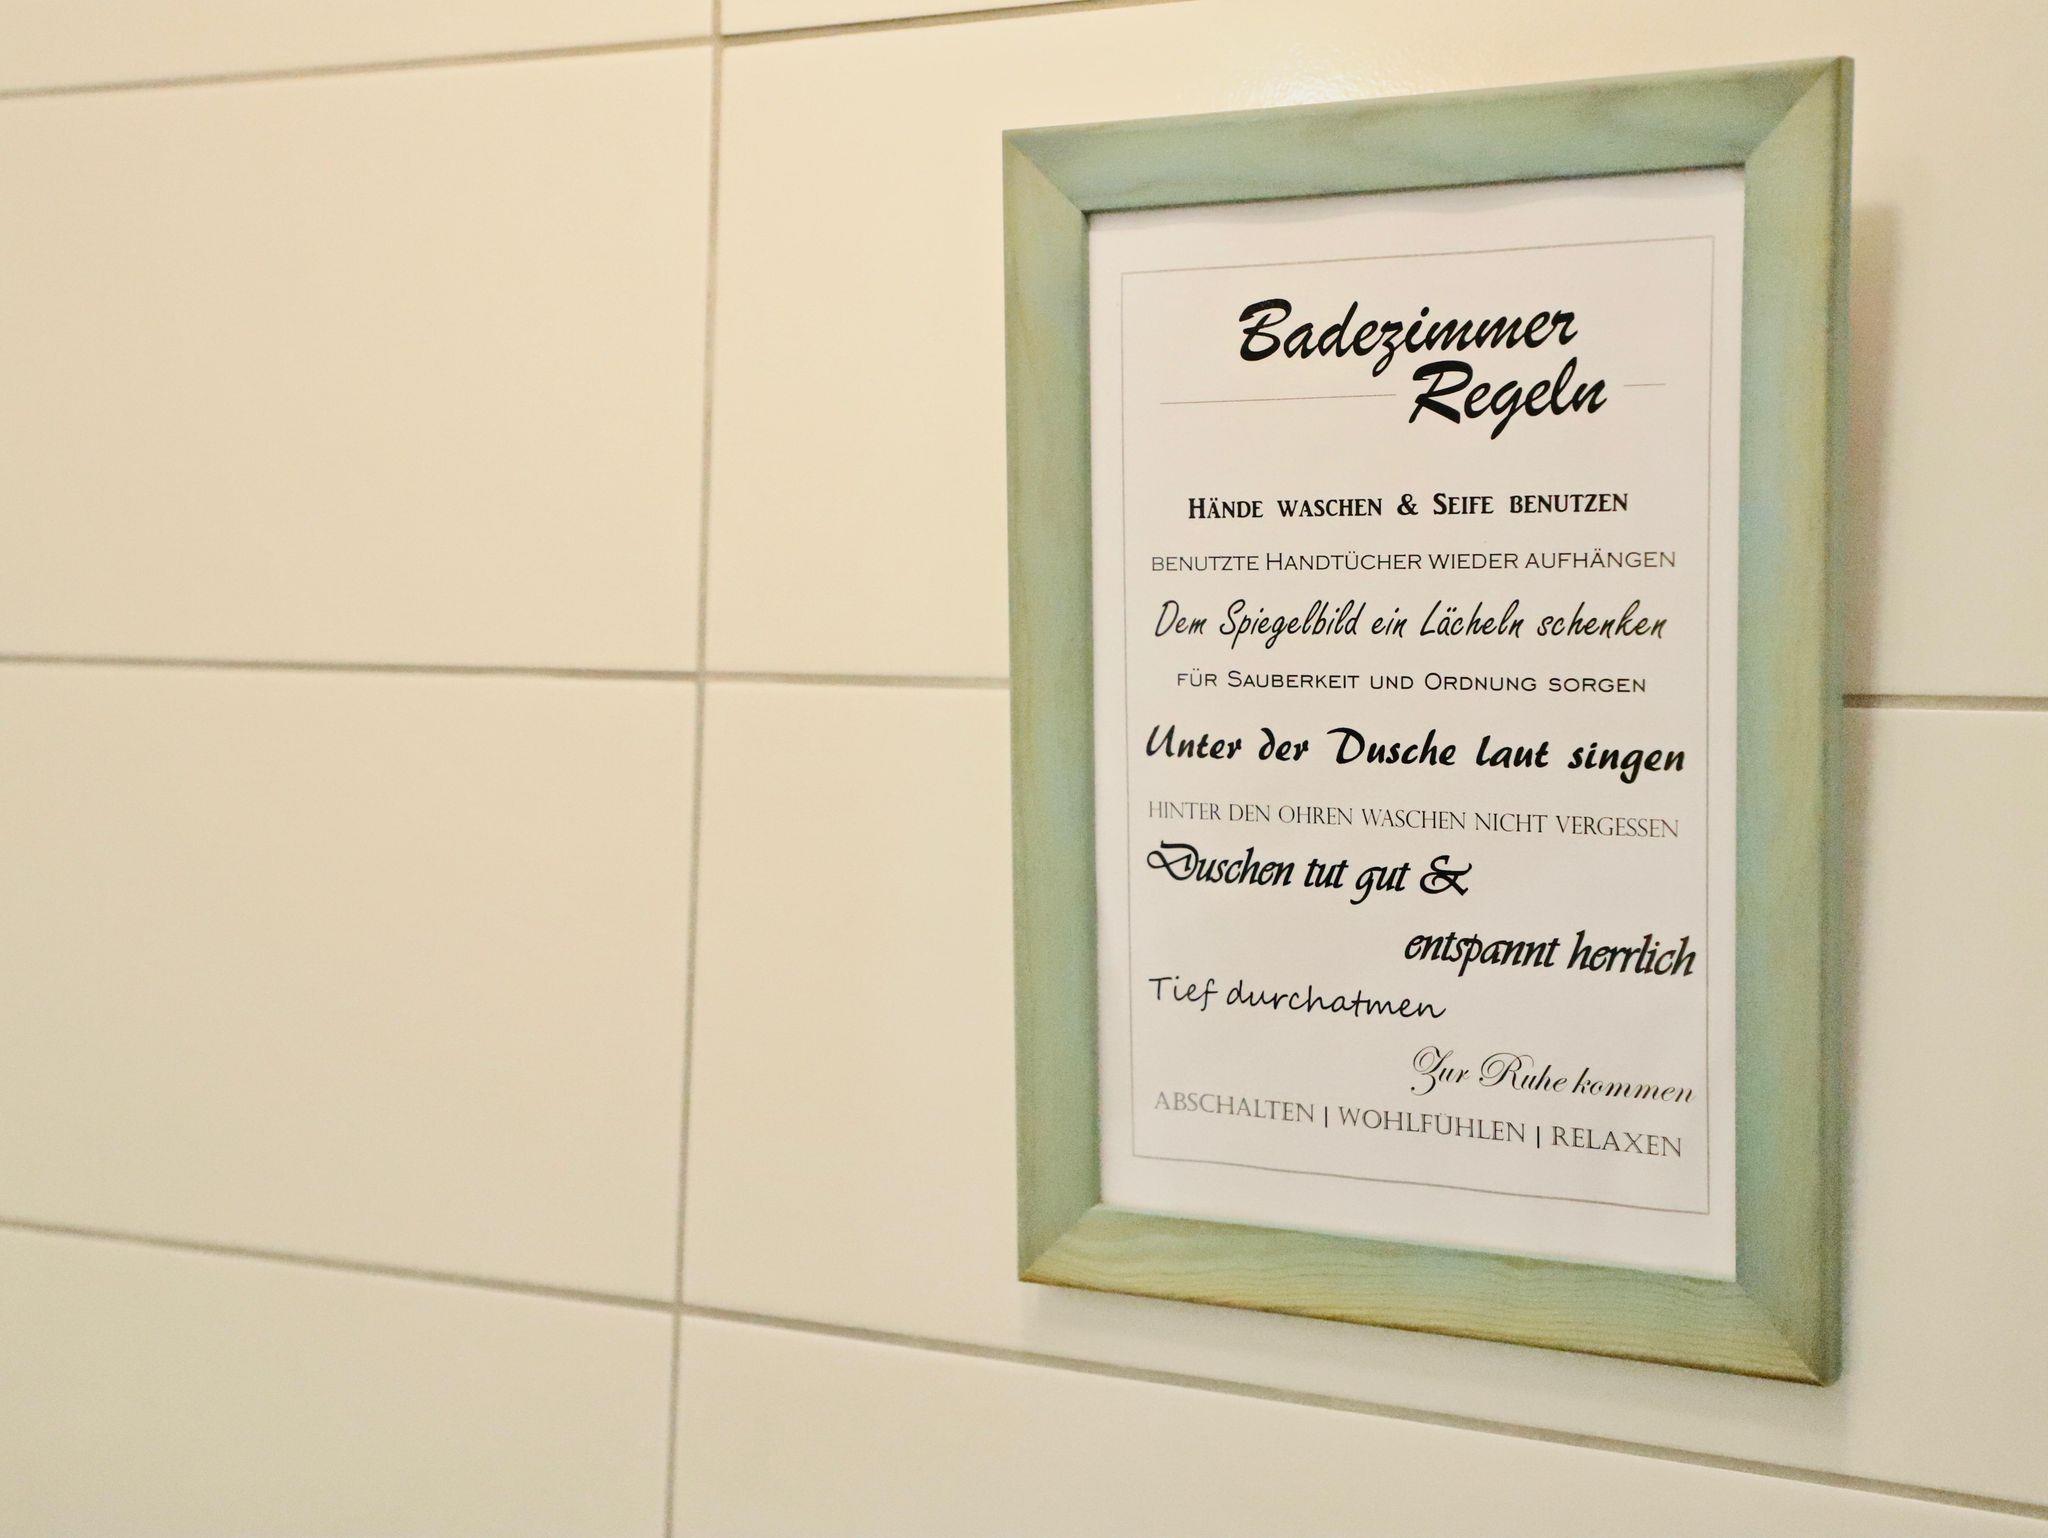 Badezimmer
Regeln
Hände waschen & Seife benutzen
benutzte Handtücher wieder aufhängen
Dem Spiegelbild ein Lächeln schenken
für Sauberkeit und Ordnung sorgen
Unter der Dusche laut singen
HINTER DEN OHREN WASCHEN NICHT VERGESSEN
Duschen tut gut &
entspannt herrlich
Tief durchatmen
Zur Ruhe kommen
ABSCHALTEN | WOHLFÜHLEN | RELAXEN